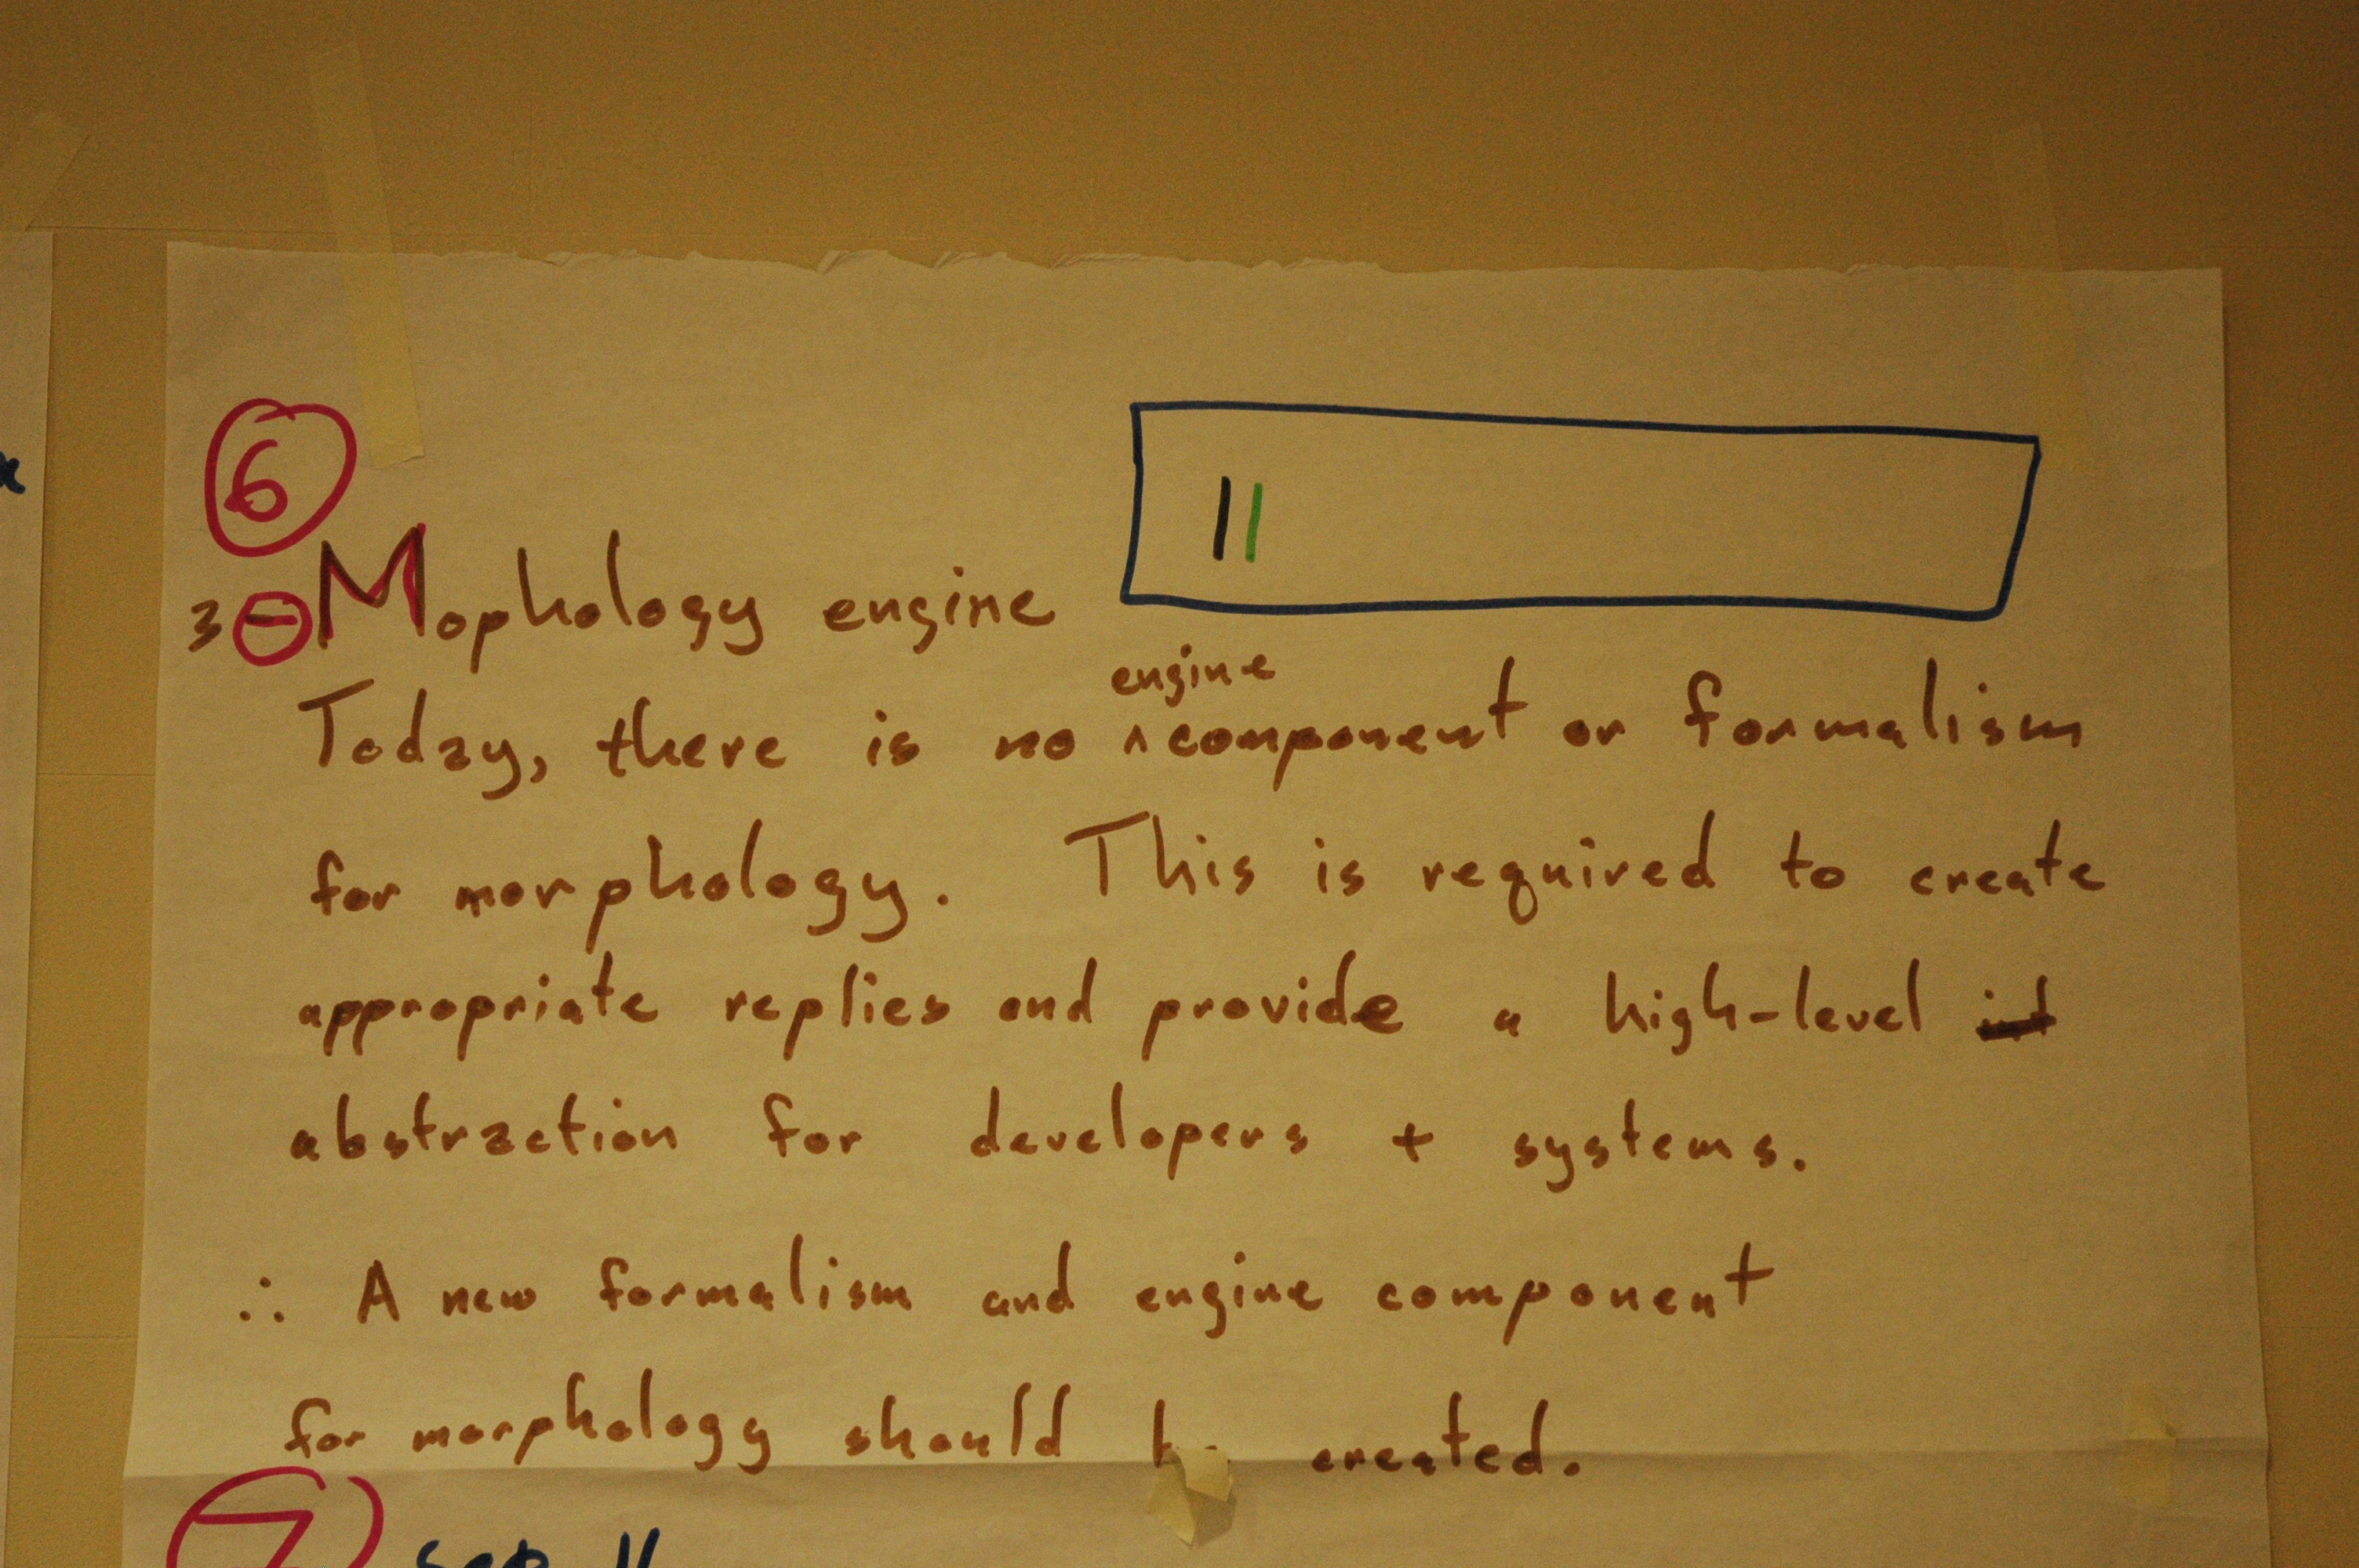 6
3 - Mophology engine
engine
Today, there is no ^ component or formalism
for morphology. This is required to create
appropriate replies and provide a high-level
abstraction for developers + systems.
∴ A new formalism and engine component
for morphology should be created.
7